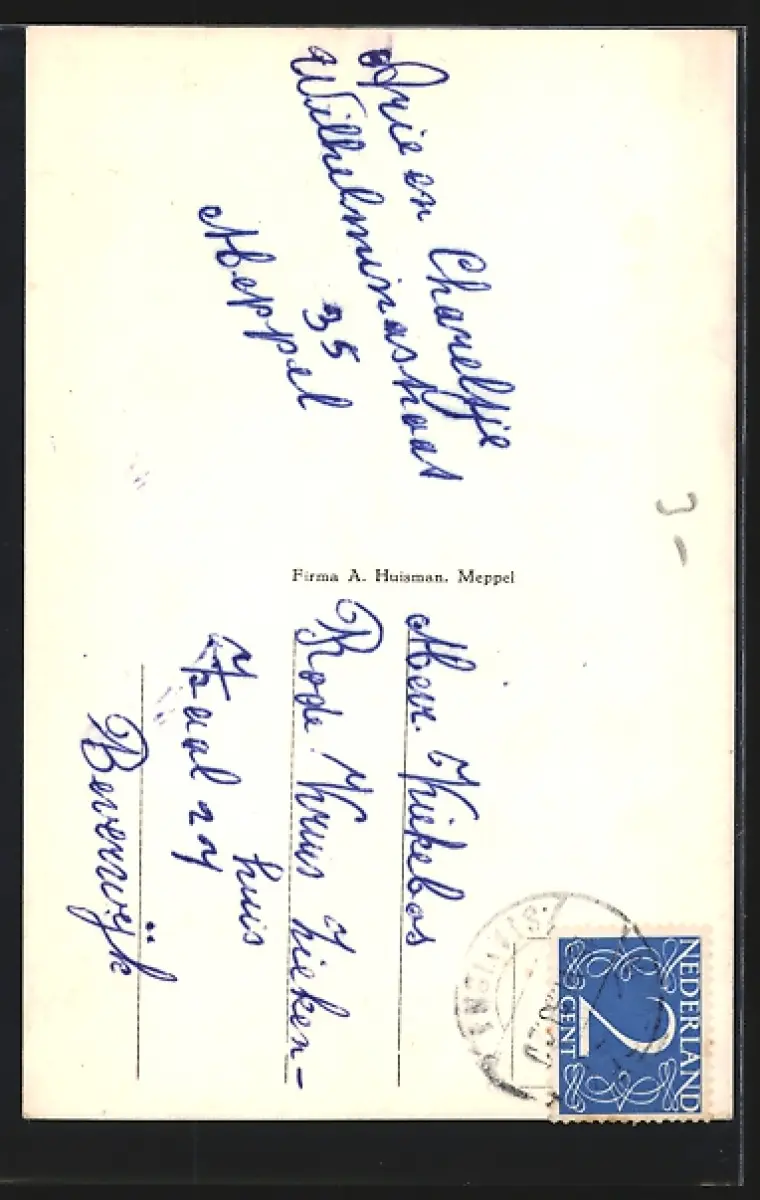 Arie en Chareltje
Wilhelminastraat
35
Meppel
Firma A. Huisman. Meppel
Mevr. Kiekebos
Rode Kruis Zieken-
huis
Zaal 24
Beverwijk
NEDERLAND
2
CENT
3-